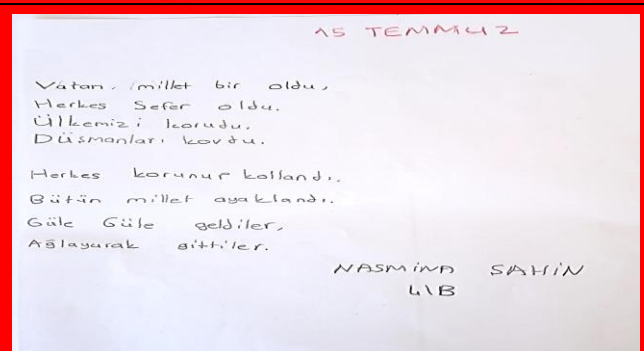 15 TEMMUZ
Vatan, millet bir oldu,
Herkes Sefer oldu.
Ülkemizi korudu,
Düşmanları kovdu.
Herkes korunur kollandı.
Bütün millet ayaklandı.
Güle Güle geldiler,
Ağlayarak gittiler.
NASMİNA ŞAHİN
4\B